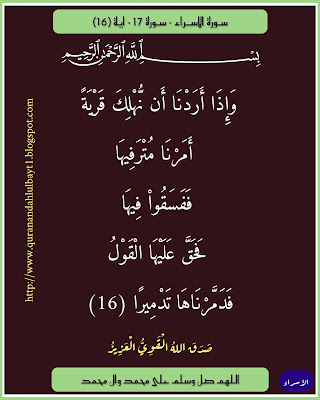 سورة الاسراء - سورة 17 - اية (16)
بِسْمِ اللَّهِ الرَّحْمَنِ الرَّحِيمِ
وَإِذَا أَرَدْنَا أَن نُّهْلِكَ قَرْيَةً
أَمَرْنَا مُتْرَفِيهَا
فَفَسَقُواْ فِيهَا
فَحَقَّ عَلَيْهَا الْقَوْلُ
فَدَمَّرْنَاهَا تَدْمِيرًا (16)
صَدَقَ اللهُ الْقَوِيُّ الْعَزِيزُ
اللهم صل وسلم على محمد وال محمد
الاسراء
http://www.quranandahlulbayt1.blogspot.com